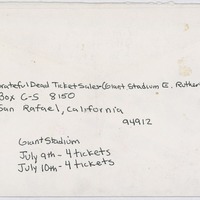 Grateful Dead Ticket Sales Giant Stadium E. Ruther
Box C-S 8150
San Rafael, California
94912
Giant Stadium
July 9th - 4 tickets
July 10th - 4 tickets